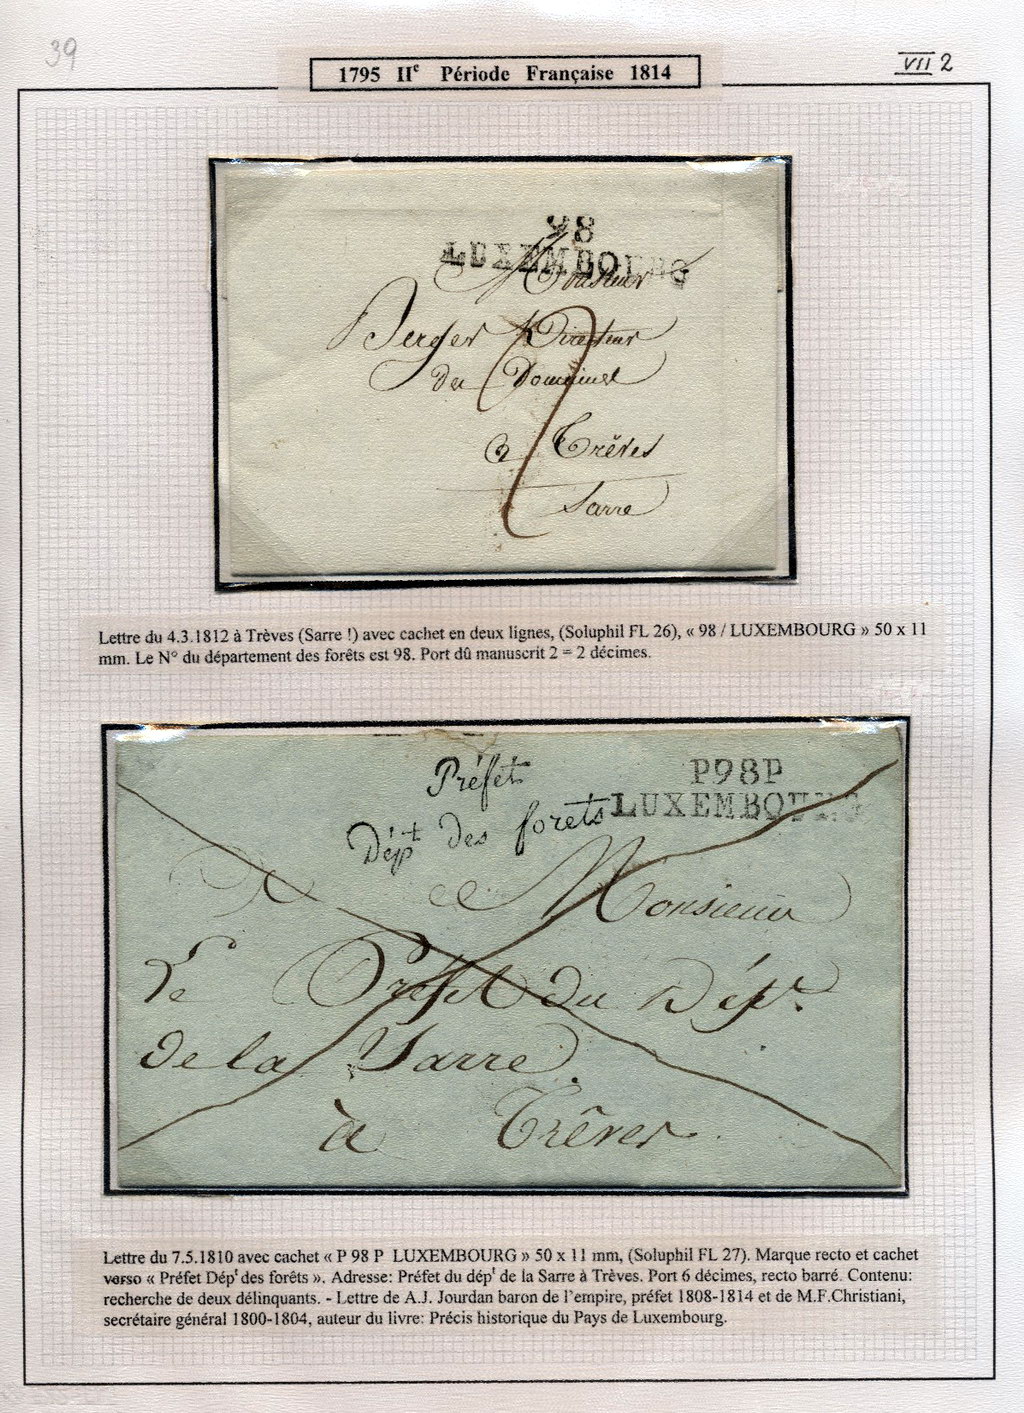 39
VII 2
1795 IIe Période Française 1814
98
LUXEMBOURG
Monsieur
Berger Directeur
du Domaines
a Trêves
Sarre
Lettre du 4.3.1812 à Trèves (Sarre !) avec cachet en deux lignes, (Soluphil FL 26), « 98 / LUXEMBOURG » 50 x 11
mm. Le N° du département des forêts est 98. Port dû manuscrit 2 = 2 décimes.
Préfet
P98P
Dépt des forets
LUXEMBOURG
A Monsieur
Le Préfet du Dépt.
de la Sarre
à Trêves
Lettre du 7.5.1810 avec cachet « P 98 P LUXEMBOURG » 50 x 11 mm, (Soluphil FL 27). Marque recto et cachet
verso « Préfet Dépt des forêts ». Adresse: Préfet du dépt de la Sarre à Trèves. Port 6 décimes, recto barré. Contenu:
recherche de deux délinquants. - Lettre de A.J. Jourdan baron de l'empire, préfet 1808-1814 et de M.F.Christiani,
secrétaire général 1800-1804, auteur du livre: Précis historique du Pays de Luxembourg.